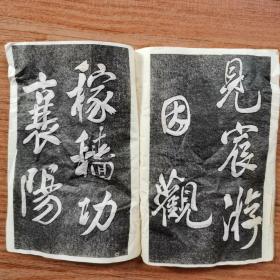 見宸游
因觀
稼穡功
襄陽